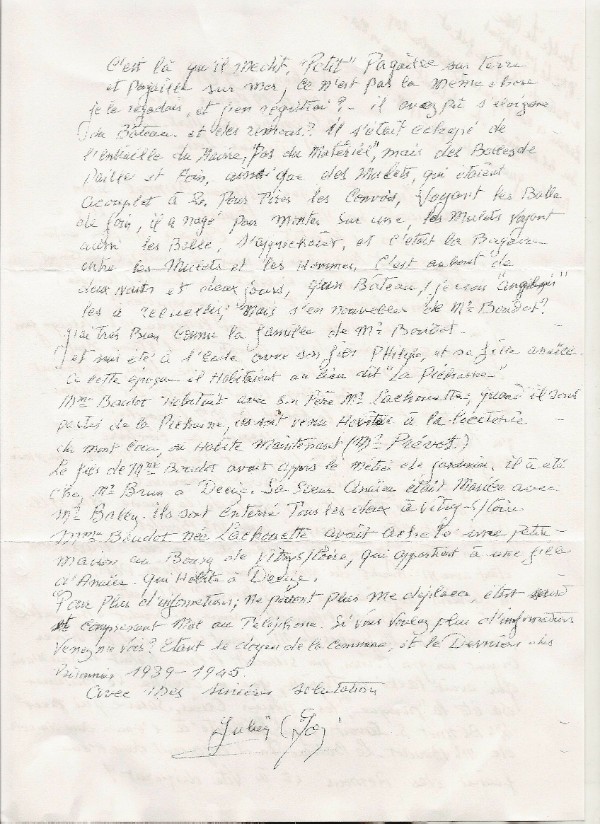 C'est là qu'il me dit, "Petit" Pagaille sur terre
et Pagaille sur mer, ce n'est pas la même chose
je le regardais, et j'en rigolais? il avez pré s'éloigné
du Bateau et des remous? Il s'était échapé de
l'entraille du Navire, "Pas du Matériel", mais des Balles de
Paille et Foin, ainsi que des Mulets, qui étaient
acouplet à 2 Pour Tirer les Convois, Voyant les Balle
de foin, il a nagé pour monter sur une, les Mulets voyant
aussi les Balles, s'approchait, et c'était la Bagarre
entre les Mulets et les Hommes, C'est au bout de
deux nuits et deux jours, qu'un Bateau, "
les a recueillis, Mais s'en nouvelles de Mr Baudot?
J'ai très Bien connu la famille de Mr Baudot.
et suis été à l'école avec son fils Philippe, et sa fille
à cette époque il Habitaient au lieu dit "La Pichaine"
Mme Baudot Habitait avec son Père Mr Lachouette, quand il sons
partis de la Pichaine, ils sont venu Habité à la
du mont, ou Habite Maintenant (Mr Prévost.)
Le fils de Mme Baudot avait appris le Métier de Jardinier, il à été
chez Mr Brun à Decize. Sa Sœur était Mariée avec
Mr. ils sont enterré Tous les deux à Vitry-s/Loire
Mme Baudot née Lachouette avait acheté une petite
maison au Bourg de Vitry s/Loire, qui appartient à une fille
d' qui Habite à Decize.
Pour Plus d'informations, Ne pouvent plus me déplacer, etant
comprenant Mal au Téléphone. Si vous voulez plus d'information
Venez me voir? Etant le doyen de la Commune, et le Dernier des
Prisonnier 1939-1945.
Avec Mes sincères salutation
Julien